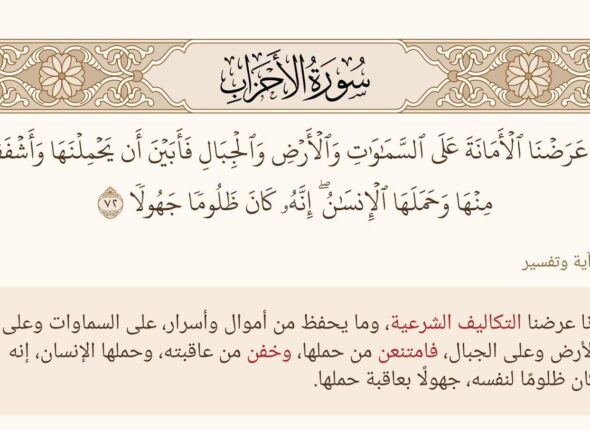 سُورَةُ الأَحْزَابِ
عَرَضْنَا ٱلْأَمَانَةَ عَلَى ٱلسَّمَٰوَٰتِ وَٱلْأَرْضِ وَٱلْجِبَالِ فَأَبَيْنَ أَن يَحْمِلْنَهَا وَأَشْفَقْ
مِنْهَا وَحَمَلَهَا ٱلْإِنسَٰنُ ۖ إِنَّهُۥ كَانَ ظَلُومًا جَهُولًا ٧٢
آية وتفسير
نا عرضنا التكاليف الشرعية، وما يحفظ من أموال وأسرار، على السماوات وعلى
لأرض وعلى الجبال، فامتنعن من حملها، وخفن من عاقبته، وحملها الإنسان، إنه
كان ظلومًا لنفسه، جهولًا بعاقبة حملها.